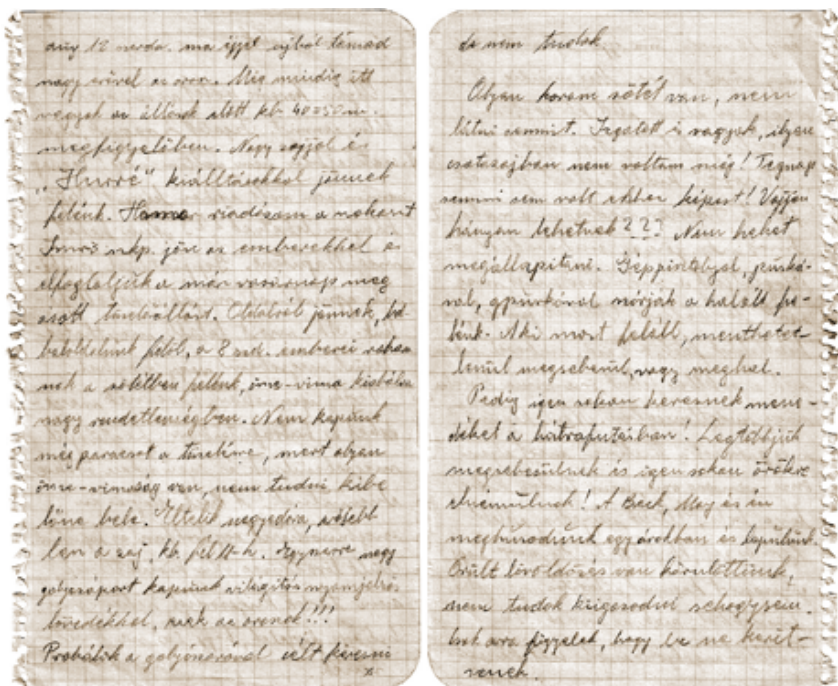 aug 12 szerda. ma éjjel ujból támad
nagy erővel az orosz. Mig mindig itt
vagyok az állások előtt kb 40-50 m.
megfigyelőben. Nagy zajjal és
"Hurré" kiálltásokkal jönnek
felénk. riadóztam a rohamot
Imris szkp. jön az emberekkel és
elfoglaljuk a már vasárnap meg
ásott tüzelőállást. Oldalról jönnek, bal
baloldalunk felöl, a 8 szd. emberei rohan
nak a sötétben felénk, össze-vissza kiabálva
nagy rendetlenségben. Nem kapunk
még parancsot a tüzelésre, mert olyan
össze-visszaság van, nem tudni kibe
lőne bele. Eltelik negyedóra, erősebb
len a zaj. kb. fél 11-h. Egyszerre nagy
golyózáport kapunk világitós nyomjelzős
lövedékkel, ezek az oroszok!!!
Probálok a golyószóróval célt keresni
de nem tudok.
Olyan korom sötét van, nem
látni semmit. Izgatott is vagyok, ilyen
csatazajban nem voltam még! Tegnap
semmi sem volt ehhez képest! Vajjon
hányan lehetnek??? Nem lehet
megállapitani. Géppisztolyal, puská-
val, gpuskával szórják a halált fe-
lénk. Aki most feláll, menthetet-
lenül megsebesül, vagy meghal.
Pedig igen sokan keresnek mene-
déket a hátrafutásban! Legtöbbjük
megsebesülnek és igen sokan örökre
elnémulnak! A Beck, May és én
meghúzodunk egy árokban és lapulunk.
Őrült lövöldözés van körülöttünk,
nem tudok kiigazodni sehogysem.
csak arra figyelek, hogy be ne kerit-
senek.